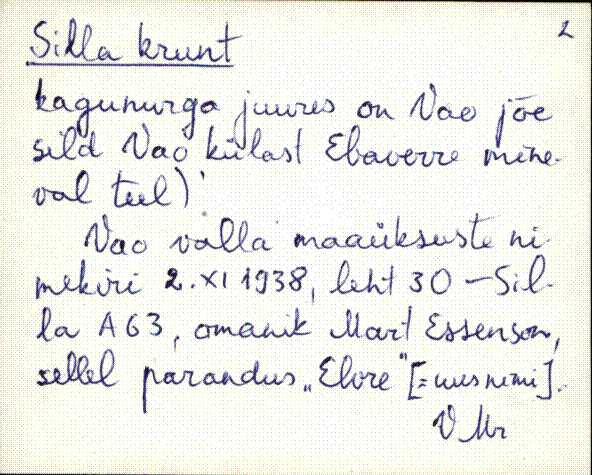 2
Silla krunt
kagunurga juures on Vao jõe
sild Vao külast Ebaverre mine-
val teel)
Vao valla maaüksuste ni-
mekiri 2.XI 1938, leht 30 – Sil-
la A63, omanik Mart Essenson,
sellel parandus „Elvre" [= uus nimi].
V Mr